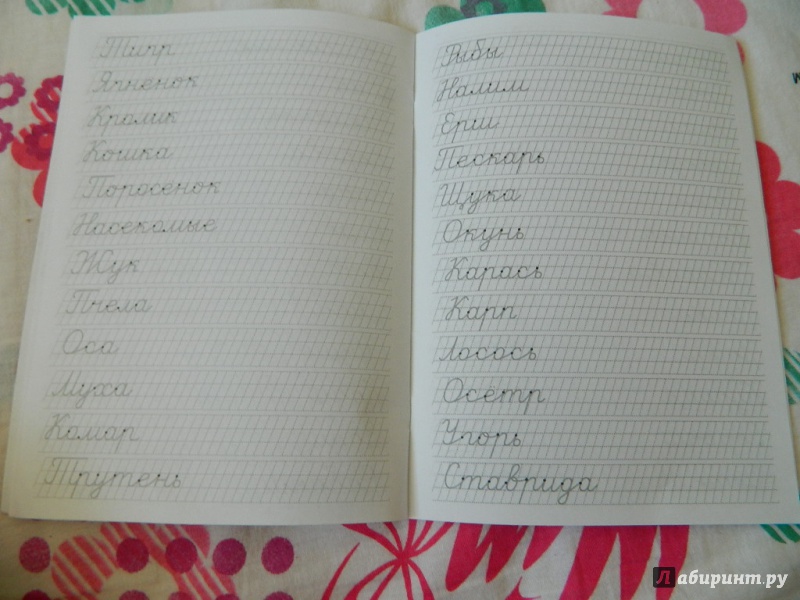 Тигр
Ягненок
Кролик
Кошка
Поросенок
Насекомые
Жук
Пчела
Оса
Муха
Комар
Трутень
Рыбы
Налим
Ерш
Пескарь
Щука
Окунь
Карась
Карп
Лосось
Осётр
Угорь
Ставрида
Лабиринт.ру